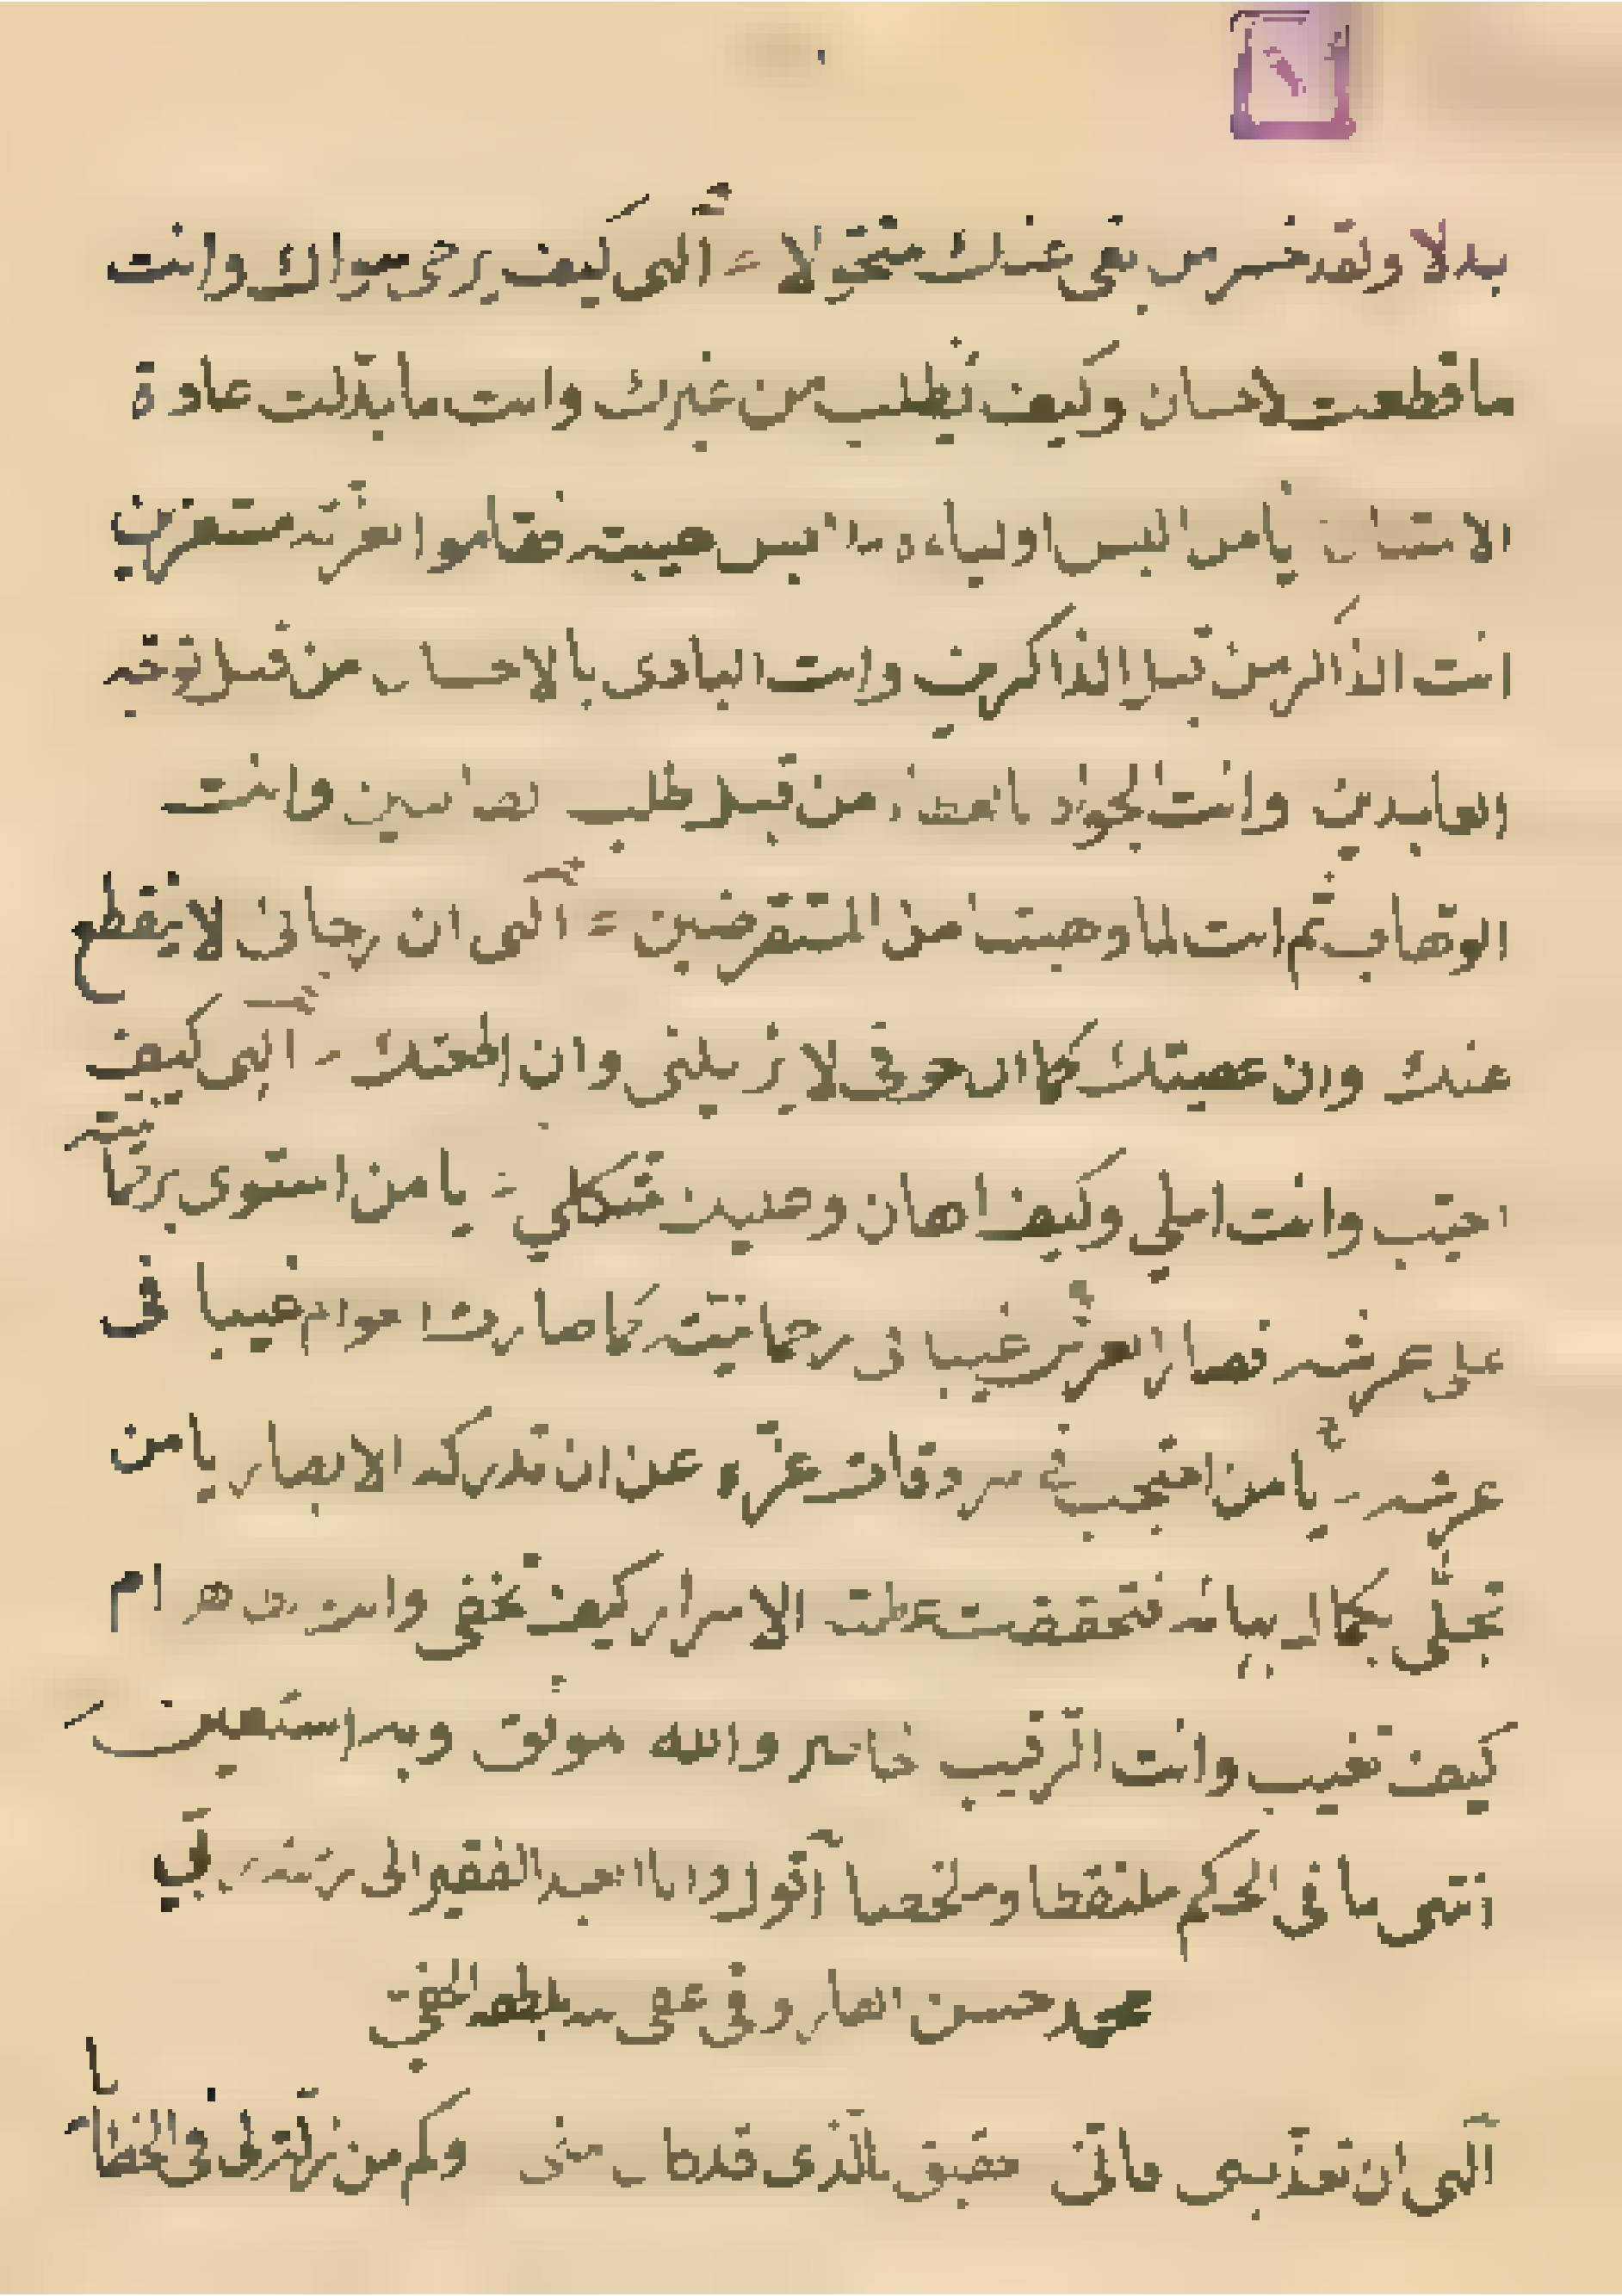 بدلا ولقد خسر من بغى عنك متحولا الهى كيف يرجى سواك وانت
ما قطعت الاحسان وكيف يطلب من غيرك وانت ما بدّلت عادة
الامتنان يا من البس اولياءه ملابس هيبته فقاموا بعزته مستعزين
انت الذاكر من قبل الذاكرين وانت البادى بالاحسان من قبل توجه
العابدين وانت الجواد بالعطاء من قبل طلب الطالبين وانت
الوهاب ثم انت لما وهبت من المستقرضين الهى ان رجائى لا ينقطع
عنك وان عصيتك كما ان خوفى لا يزايلنى وان اطعتك الهى كيف
اخيب وانت املي وكيف اهان وعليك متكلي يا من استوى برحمانيته
على عرشه فصار العرش غيبا فى رحمانيته كما صارت العوالم غيبا فى
عرشه يا من احتجب في سرادقات عزه عن ان تدركه الابصار يا من
تجلّى بكمال بهائه فتحققت عظمته الاسرار كيف تخفى وانت الظاهر ام
كيف تغيب وانت الرّقيب حاضر والله موفق وبه استعين
انتهى ما فى الحكم ملتقطا وملخصا أقول وانا العبد الفقير الى ربي
محمد حسن الفاروقى عفى عنه بلطفه الخفي
الهى ان تعذّبنى فانّى حقيق بالّذى قد كان منى وكم من زلّة لى فى الخطايا